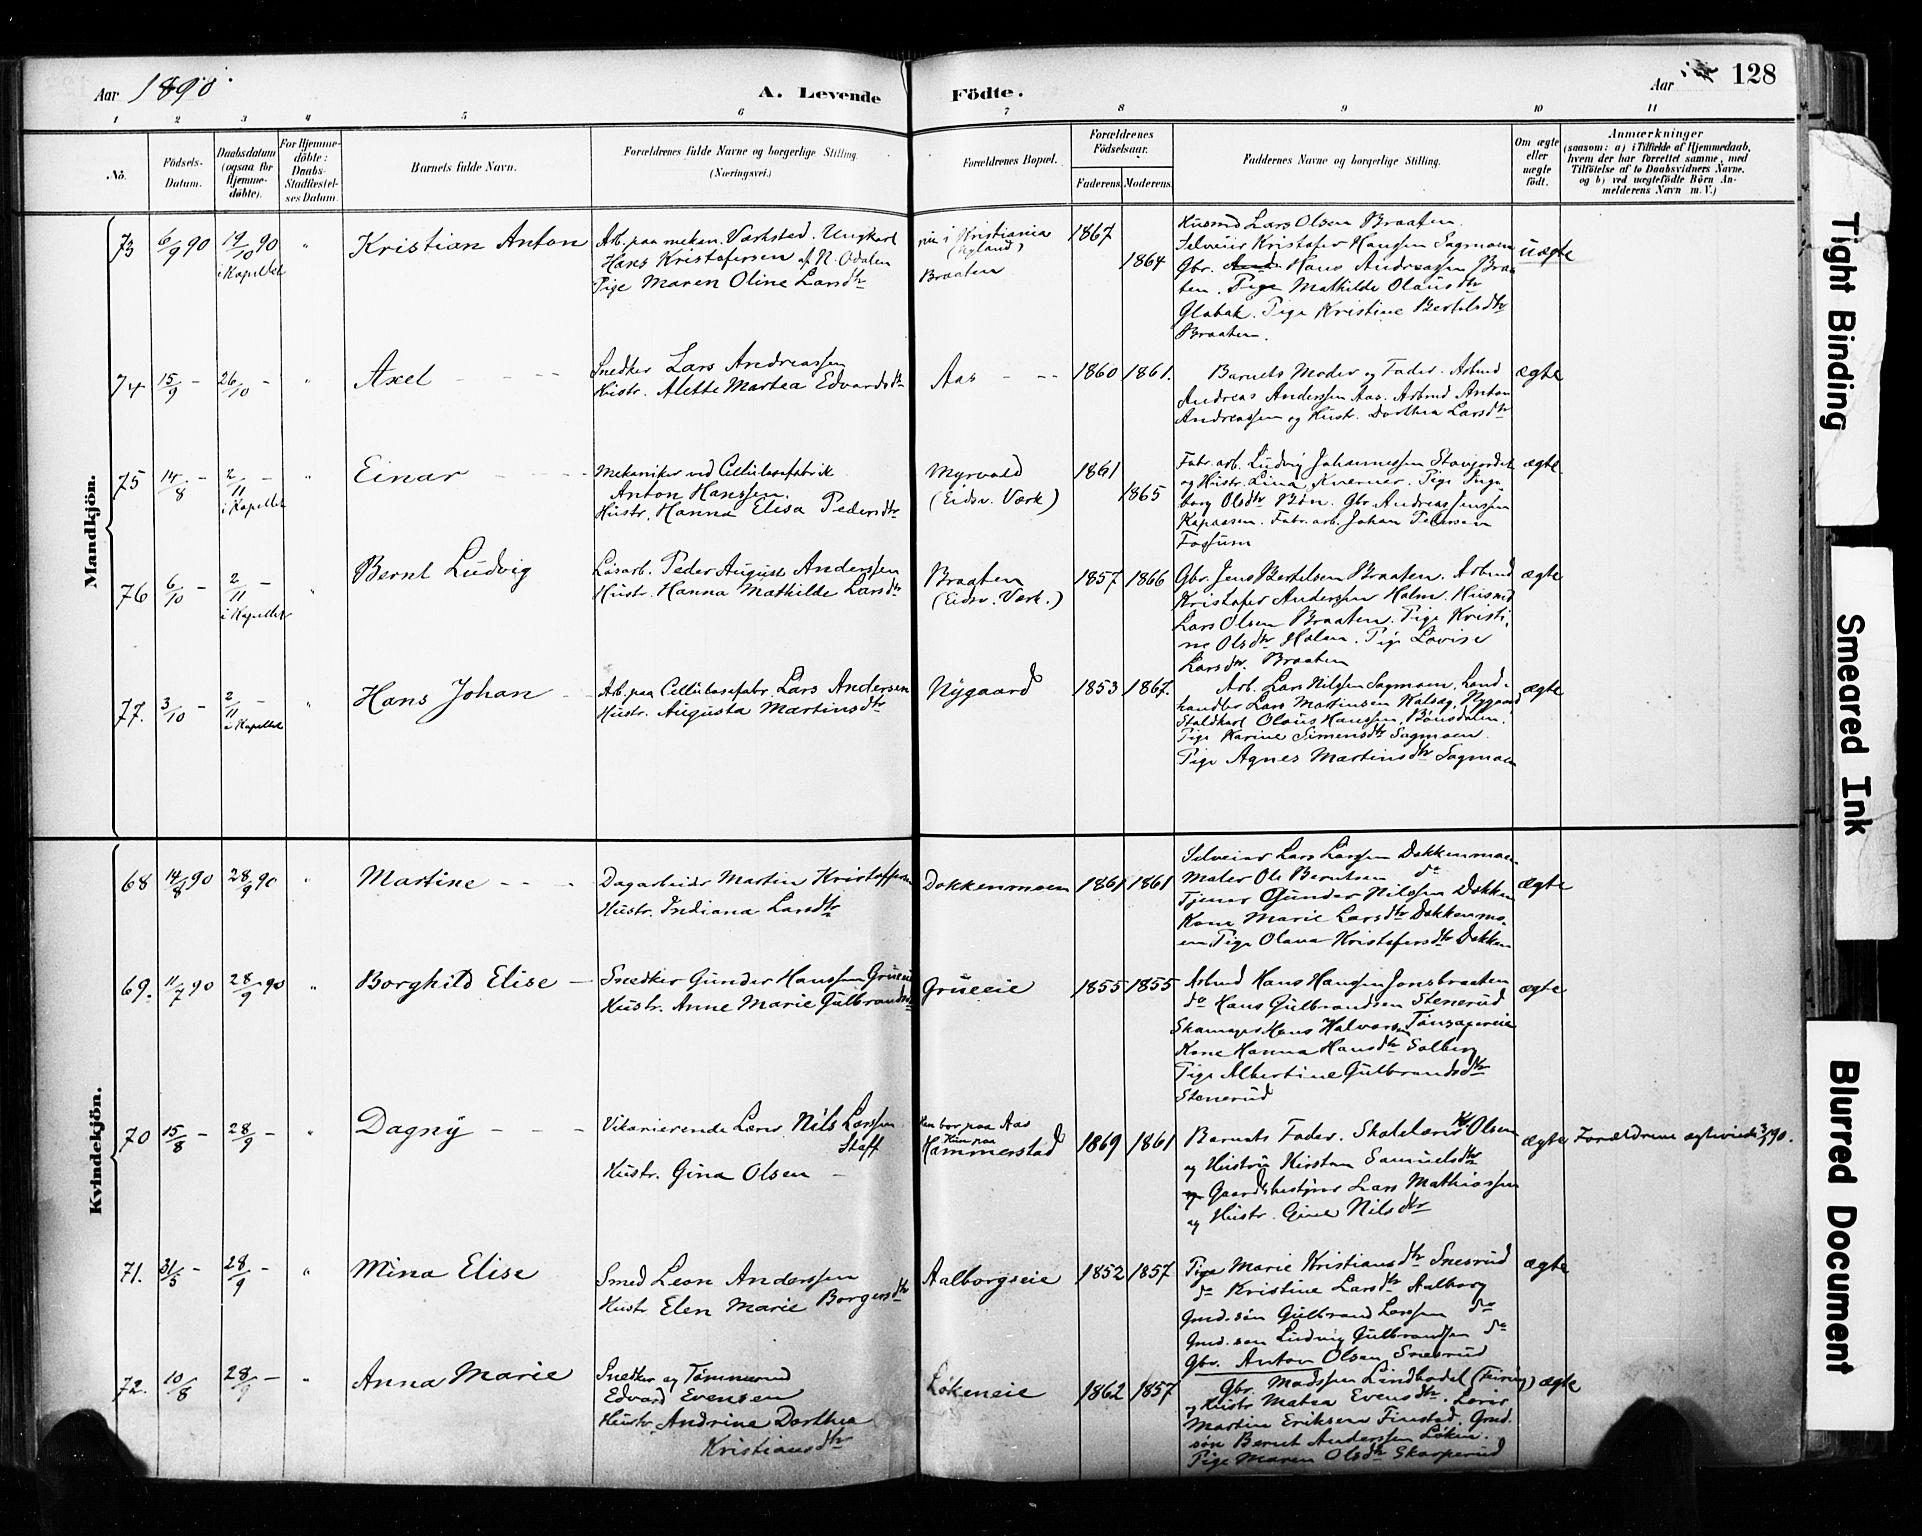 Aar 1890.
A. Levende Födte.
Aar
128
1 2 3 4 5 6 7 8 9 10 11
No.
Födsels-Datum.
Daabsdatum (ogsaa for Hjemme-döbte).
For Hjemme-döbte: Daabs-Stadfæstel-ses Datum.
Barnets fulde Navn.
Forældrenes fulde Navne og borgerlige Stilling. (Næringsvei.)
Forældrenes Bopæl.
Forældrenes Födselsaar.
Faderens. Moderens.
Faddernes Navne og borgerlige Stilling.
Om ægte eller uægte født.
Anmærkninger
(saasom: a) i Tilfælde af Hjemmedaab, hvem der har forrettet samme, med Tilföielse af to Daabsvidners Navne, og b) ved uægtefödte Börn An-melderens Navn m. V.)
Mandkjön.
73 6/9 90 19/10 90 " Kristian Anton
i Kapellet
Arb. paa mekan. Værksted. Ungkarl
Hans Kristofersen af N. Odalen
Pige Maren Oline Larsdtr
nu i Kristiania
(Nyland)
Braaten
1867
1864
Husmd Lars Olsen Braaten.
Selveier Kristofer Hansen Sagmoen
Gbr. Hans Andreassen Braa
ten. Pige Mathilde Olausdtr
Globak. Pige Kristine Bertelsdtr
Braaten.
uægte
74 15/9 - 26/10 - " Axel - - - -
Snedker Lars Andreassen
Hustr. Alette Martea Edvardsdtr
Aas - - -
1860 1861.
Barnets Moder og Fader. Arbmd
Andreas Anderssen Aas. Arbmd Anton
Andreassen og Hustr. Dorthea Larsdtr
ægte
75 14/8 - 2/11 - " Einar - - - -
i Kapellet
Mekaniker ved Cellulosefabrik
Anton Hanssen.
Hustr. Hanna Elisa Pedersdtr
Myrvold
(Eidsv. Værk)
1861
1865
Fabr. arb. Ludvig Johannessen
og Hustr. Lina Kverner. Pige Inge
borg Olsdtr Bøn. Gbr. Andreas Jenssen
Kapaasen. Fabr. arb. Johan Petersen
Fossum
ægte
76 6/10 - 2/11 - " Bernt Ludvig
i Kapellet
Løsarb. Peder August Anderssen
Hustr. Hanna Mathilde Larsdtr
Braaten
(Eidsv. Værk.)
1857 1866
Gbr. Jens Bertelsen Braaten. Arbmd
Kristofer Anderssen Holm. Husmd
Lars Olsen Braaten. Pige Kristi
ne Olsdtr Holm. Pige Lovise
Larsdtr. Braaten
ægte
77. 3/10 - 2/11 - " Hans Johan - -
i Kapellet
Arb. paa Cellulosefabr. Lars Andersen
Hustr. Augusta Martinsdtr
Nygaard
1853 1867.
Arb. Lars Nilssen Sagmoen, Land-
handler Lars Martinsen Nygaard
Staldkarl Olaus Hanssen, Bønsdalen.
Pige Karine Simensdtr Sagmoen.
Pige Agnes Martinsdtr Sagmoen
ægte
Kvindekjön.
68 14/8 90 28/9 90 " Martine - - -
Dagarbeider Martin Kristoffersen
Hustr. Indiana Larsdtr
Dokkenmoen
1861 1861
Selveier Lars Larssen Dokkenmoen
Maler Ole Berntsen do
Tjener Gunder Nilssen Dokken
Kone Marie Larsdtr Dokkenmo-
en Pige Olava Kristofersdtr Dokken
ægte
69. 11/7 90 28/9 90 " Borghild Elise -
Snedker Gunder Hanssen Grueeie
Hustr. Anne Marie Gulbrandsdtr
Grueeie
1855 1855
Arbmd Hans Hansen Jonsbraaten
do Hans Gulbrandsen Stenerud
Skomager Hans Halvorsen
Kone Hanna Hansdtr Solberg
Pige Albertine Gulbrandsdtr
Stenerud
ægte
70 15/8 - 28/9 - " Dagny - - -
Vikarierende Lærer Nils Larssen
Staff
Hustr. Gina Olsen -
Han bor paa Aas
Hun paa
Hammerstad
1869 1861
Barnets Fader. Skolelærer Olsen
og Hustru Kirsten Samuelsdtr
Gaardsbestyrer Lars Mathiassen
og Hustr. Gine Nilsdtr
ægte
Forældrene ægteviede 90.
71. 31/5 - 28/9 - " Mina Elise
Smed Leon Anderssen
Hustr Elen Marie Borgersdtr
Aalborgseie
1852 1857
Pige Marie Kristiansdtr Snesrud
do Kristine Larsdtr Aalborg
Gmd. søn Gulbrand Larssen do
Gmd. søn Ludvig Gulbrandsen do
Gbr. Anton Olsen Snesrud
ægte
72. 10/8 - 28/9 - " Anna Marie
Snedker og Tømmermd
Edvard Evensen
Hustr. Andrine Dorthea
Kristiansdtr
Løkeneie
1862 1857
Gbr. Madssen Lindbodel (Feiring)
og Hustr Matea Evensdtr.
Martin Eriksen Finstad. Gmd.
søn Bernt Anderssen Løken.
Pige Maren Olsdtr Skarperud
ægte
Tight Binding
Smeared Ink
Blurred Document